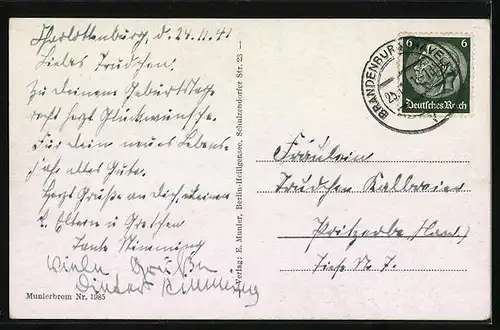 Charlottenburg, d. 24.11.41
Liebes Trudchen.
Zu deinem Geburtstage
recht herzl Glückwünsche.
Für dein neues Lebens-
jahr alles Gute.
Herzl Grüße an Dich,
l. Eltern u. Gretchen
Tante Nimming
Viele Grüße
Dieter Nimming
Munierbrom Nr. 1985
Verlag: E. Munier, Berlin-Heiligensee, Schulzendorfer Str. 23
BRANDENBURG (HAVEL)
6 6
Deutsches Reich
Fräulein
Trudchen
Pritzerbe (Hav.)
N 7.